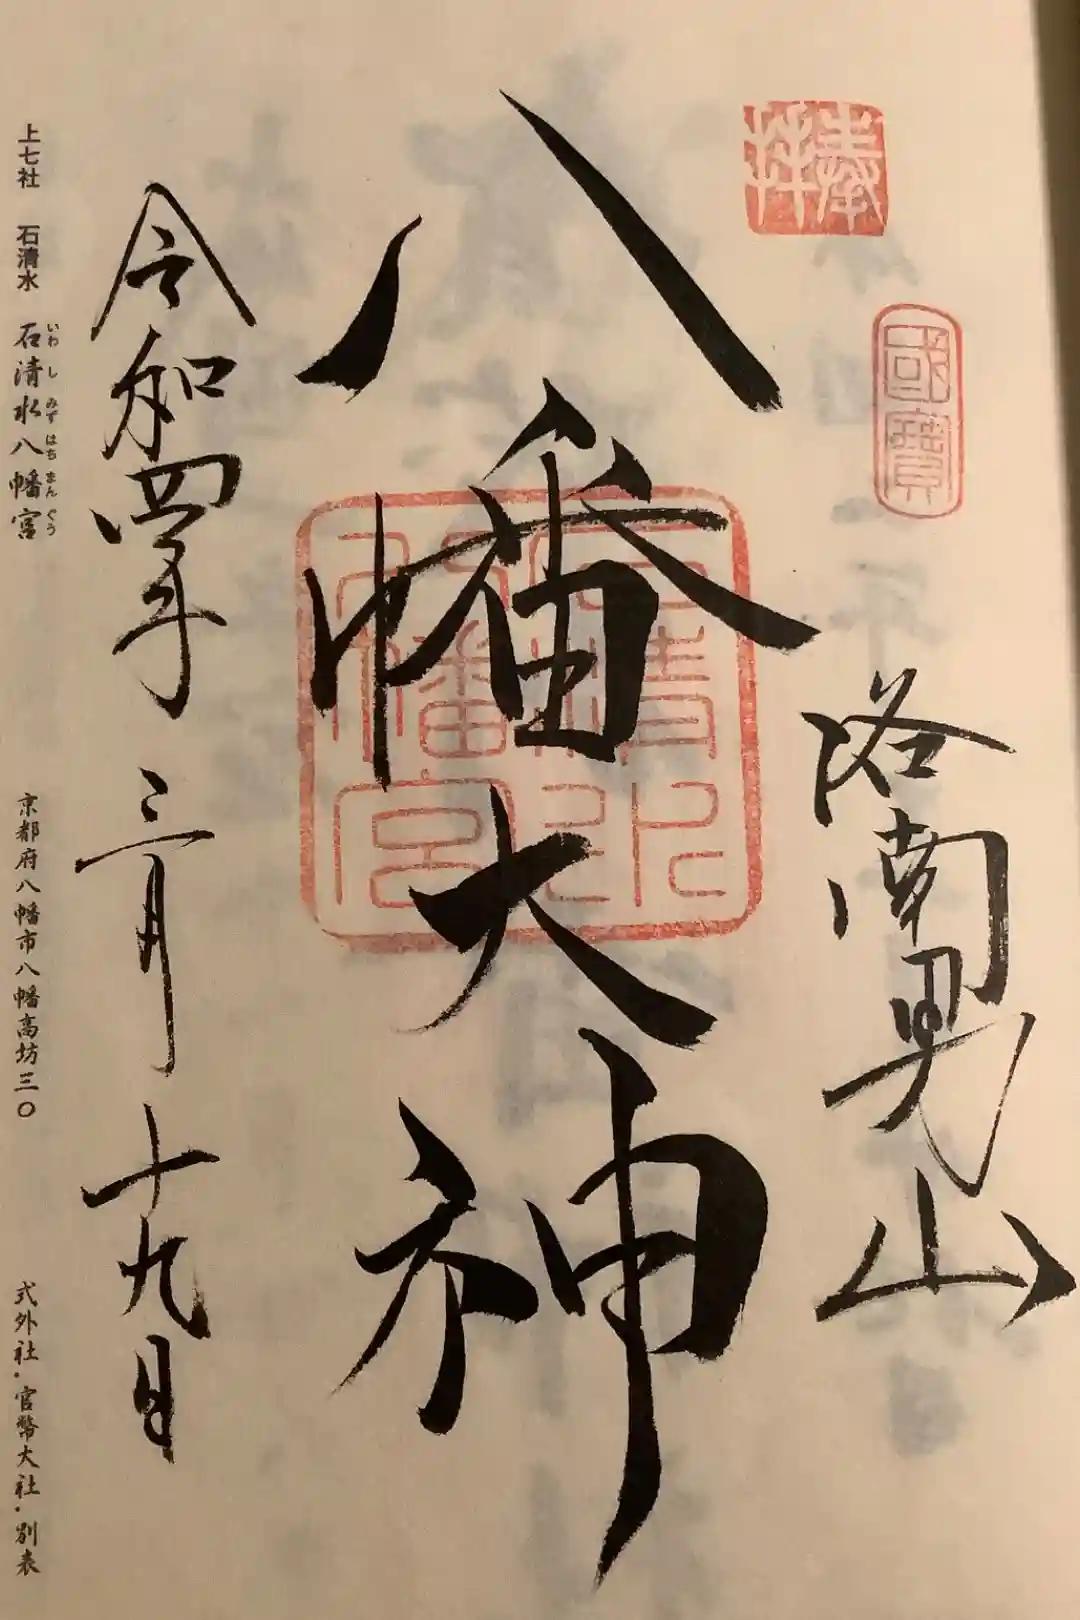 奉拝
國寶
洛南男山
八幡大神
石清水八幡宮
令和四年三月十九日
上七社 石清水 石清水八幡宮 京都府八幡市八幡高坊三〇 式外社・官幣大社・別表
いわ し みず はち まん ぐう